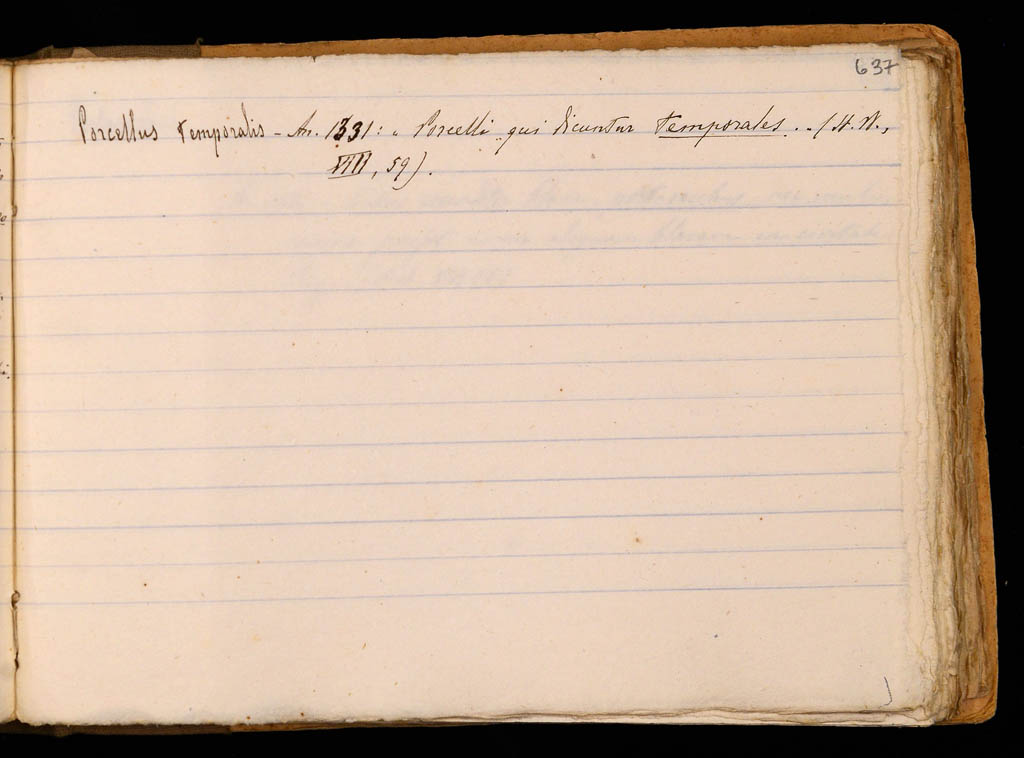 637
Porcellus temporalis - An. 1331: « Porcelli qui dicuntur temporales . . (H. W.,
VIII, 59).